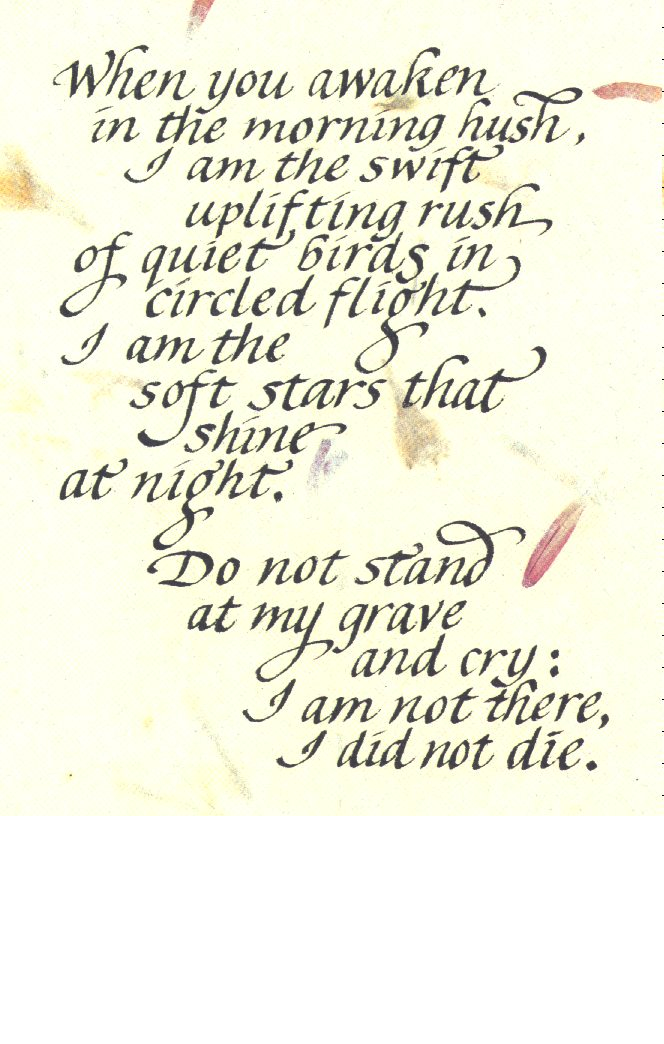 When you awaken
in the morning hush,
I am the swift
uplifting rush
of quiet birds in
circled flight.
I am the
soft stars that
shine
at night.
Do not stand
at my grave
and cry:
I am not there,
I did not die.